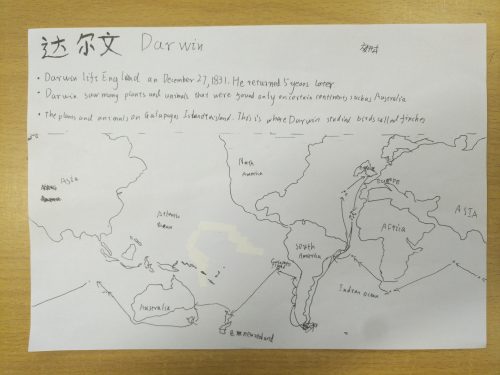 达尔文 Darwin
• Darwin lift England on December 27, 1831. He returned 5 years later.
• Darwin saw many plants and animals that were found only on certain continents such as Australia
• The plants and animals on Galapagos Island. This is where Darwin studied birds called finches
North America
ASIA
Atlantic
Ocean
Europe
AFRICA
ASIA
South America
Indean Ocean
Australia
newzealand